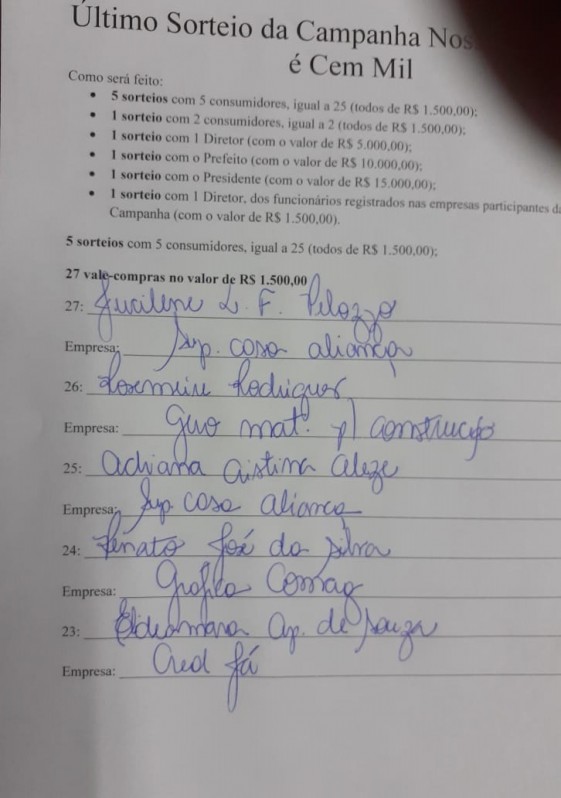 Último Sorteio da Campanha Nos
é Cem Mil
Como será feito:
• 5 sorteios com 5 consumidores, igual a 25 (todos de R$ 1.500,00);
• 1 sorteio com 2 consumidores, igual a 2 (todos de R$ 1.500,00);
• 1 sorteio com 1 Diretor (com o valor de R$ 5.000,00);
• 1 sorteio com o Prefeito (com o valor de R$ 10.000,00);
• 1 sorteio com o Presidente (com o valor de R$ 15.000,00);
• 1 sorteio com 1 Diretor, dos funcionários registrados nas empresas participantes da
Campanha (com o valor de R$ 1.500,00).
5 sorteios com 5 consumidores, igual a 25 (todos de R$ 1.500,00);
27 vale-compras no valor de R$ 1.500,00
27: Jucilene L. F. Pelozzo
Empresa: Sup. casa aliança
26: Rosemeire Rodrigues
Empresa: mat. p/ construção
25: Adriana Cristina
Empresa: Sup casa aliança
24: Renato José da Silva
Empresa: Grafica Comag
23: Ap. de Souza
Empresa: Cred Já